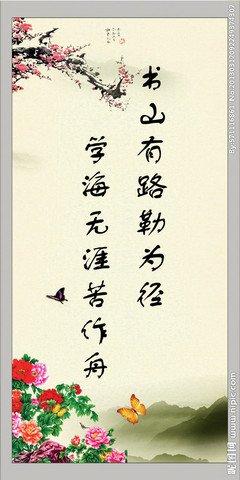 书山有路勤为径
学海无涯苦作舟
昵图网 www.nipic.com
By:571116861 No:20130310092239374307